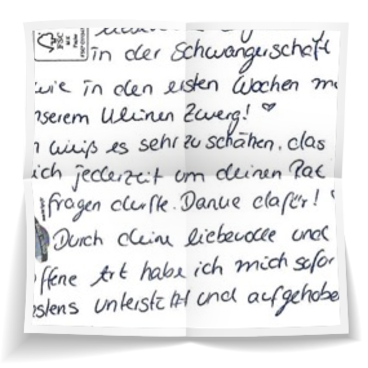 FSC
MIX
in der Schwangerschaft
wie in den ersten Wochen m
nserem kleinen Zwerg! ♡
weiß es sehr zu schätzen, das
ich jederzeit um deinen Rat
fragen durfte. Danke dafür!
Durch deine liebevolle und
ffene Art habe ich mich sofor
estens unterstützt und aufgehobe